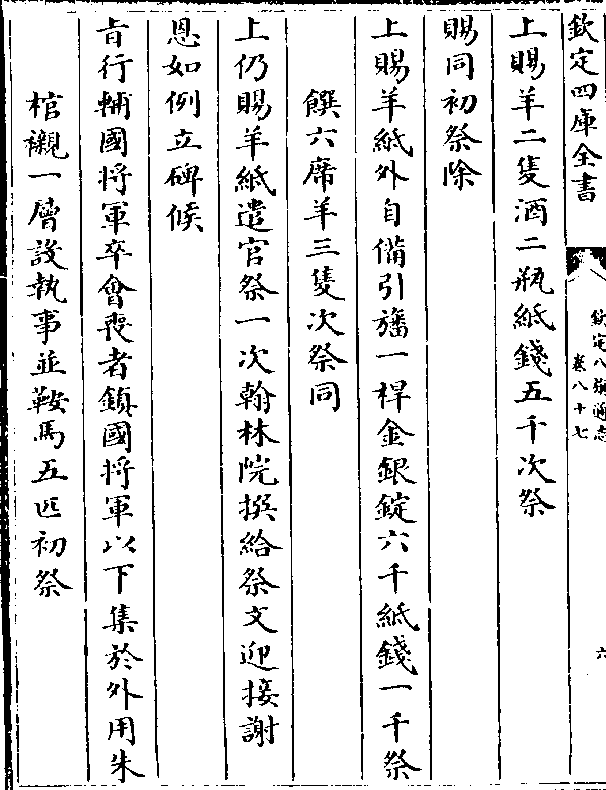 欽定四庫全書
欽定八旗通志
卷八十七
六
上賜羊二隻酒二瓶紙錢五千次祭
賜同初祭除
上賜羊紙外自備引旛一桿金銀錠六千紙錢一千祭
饌六席羊三隻次祭同
上仍賜羊紙遣官祭一次翰林院撰給祭文迎接謝
恩如例立碑候
㫖行輔國將軍卒會喪者鎮國將軍以下集於外用朱
棺襯一層設執事並鞍馬五匹初祭